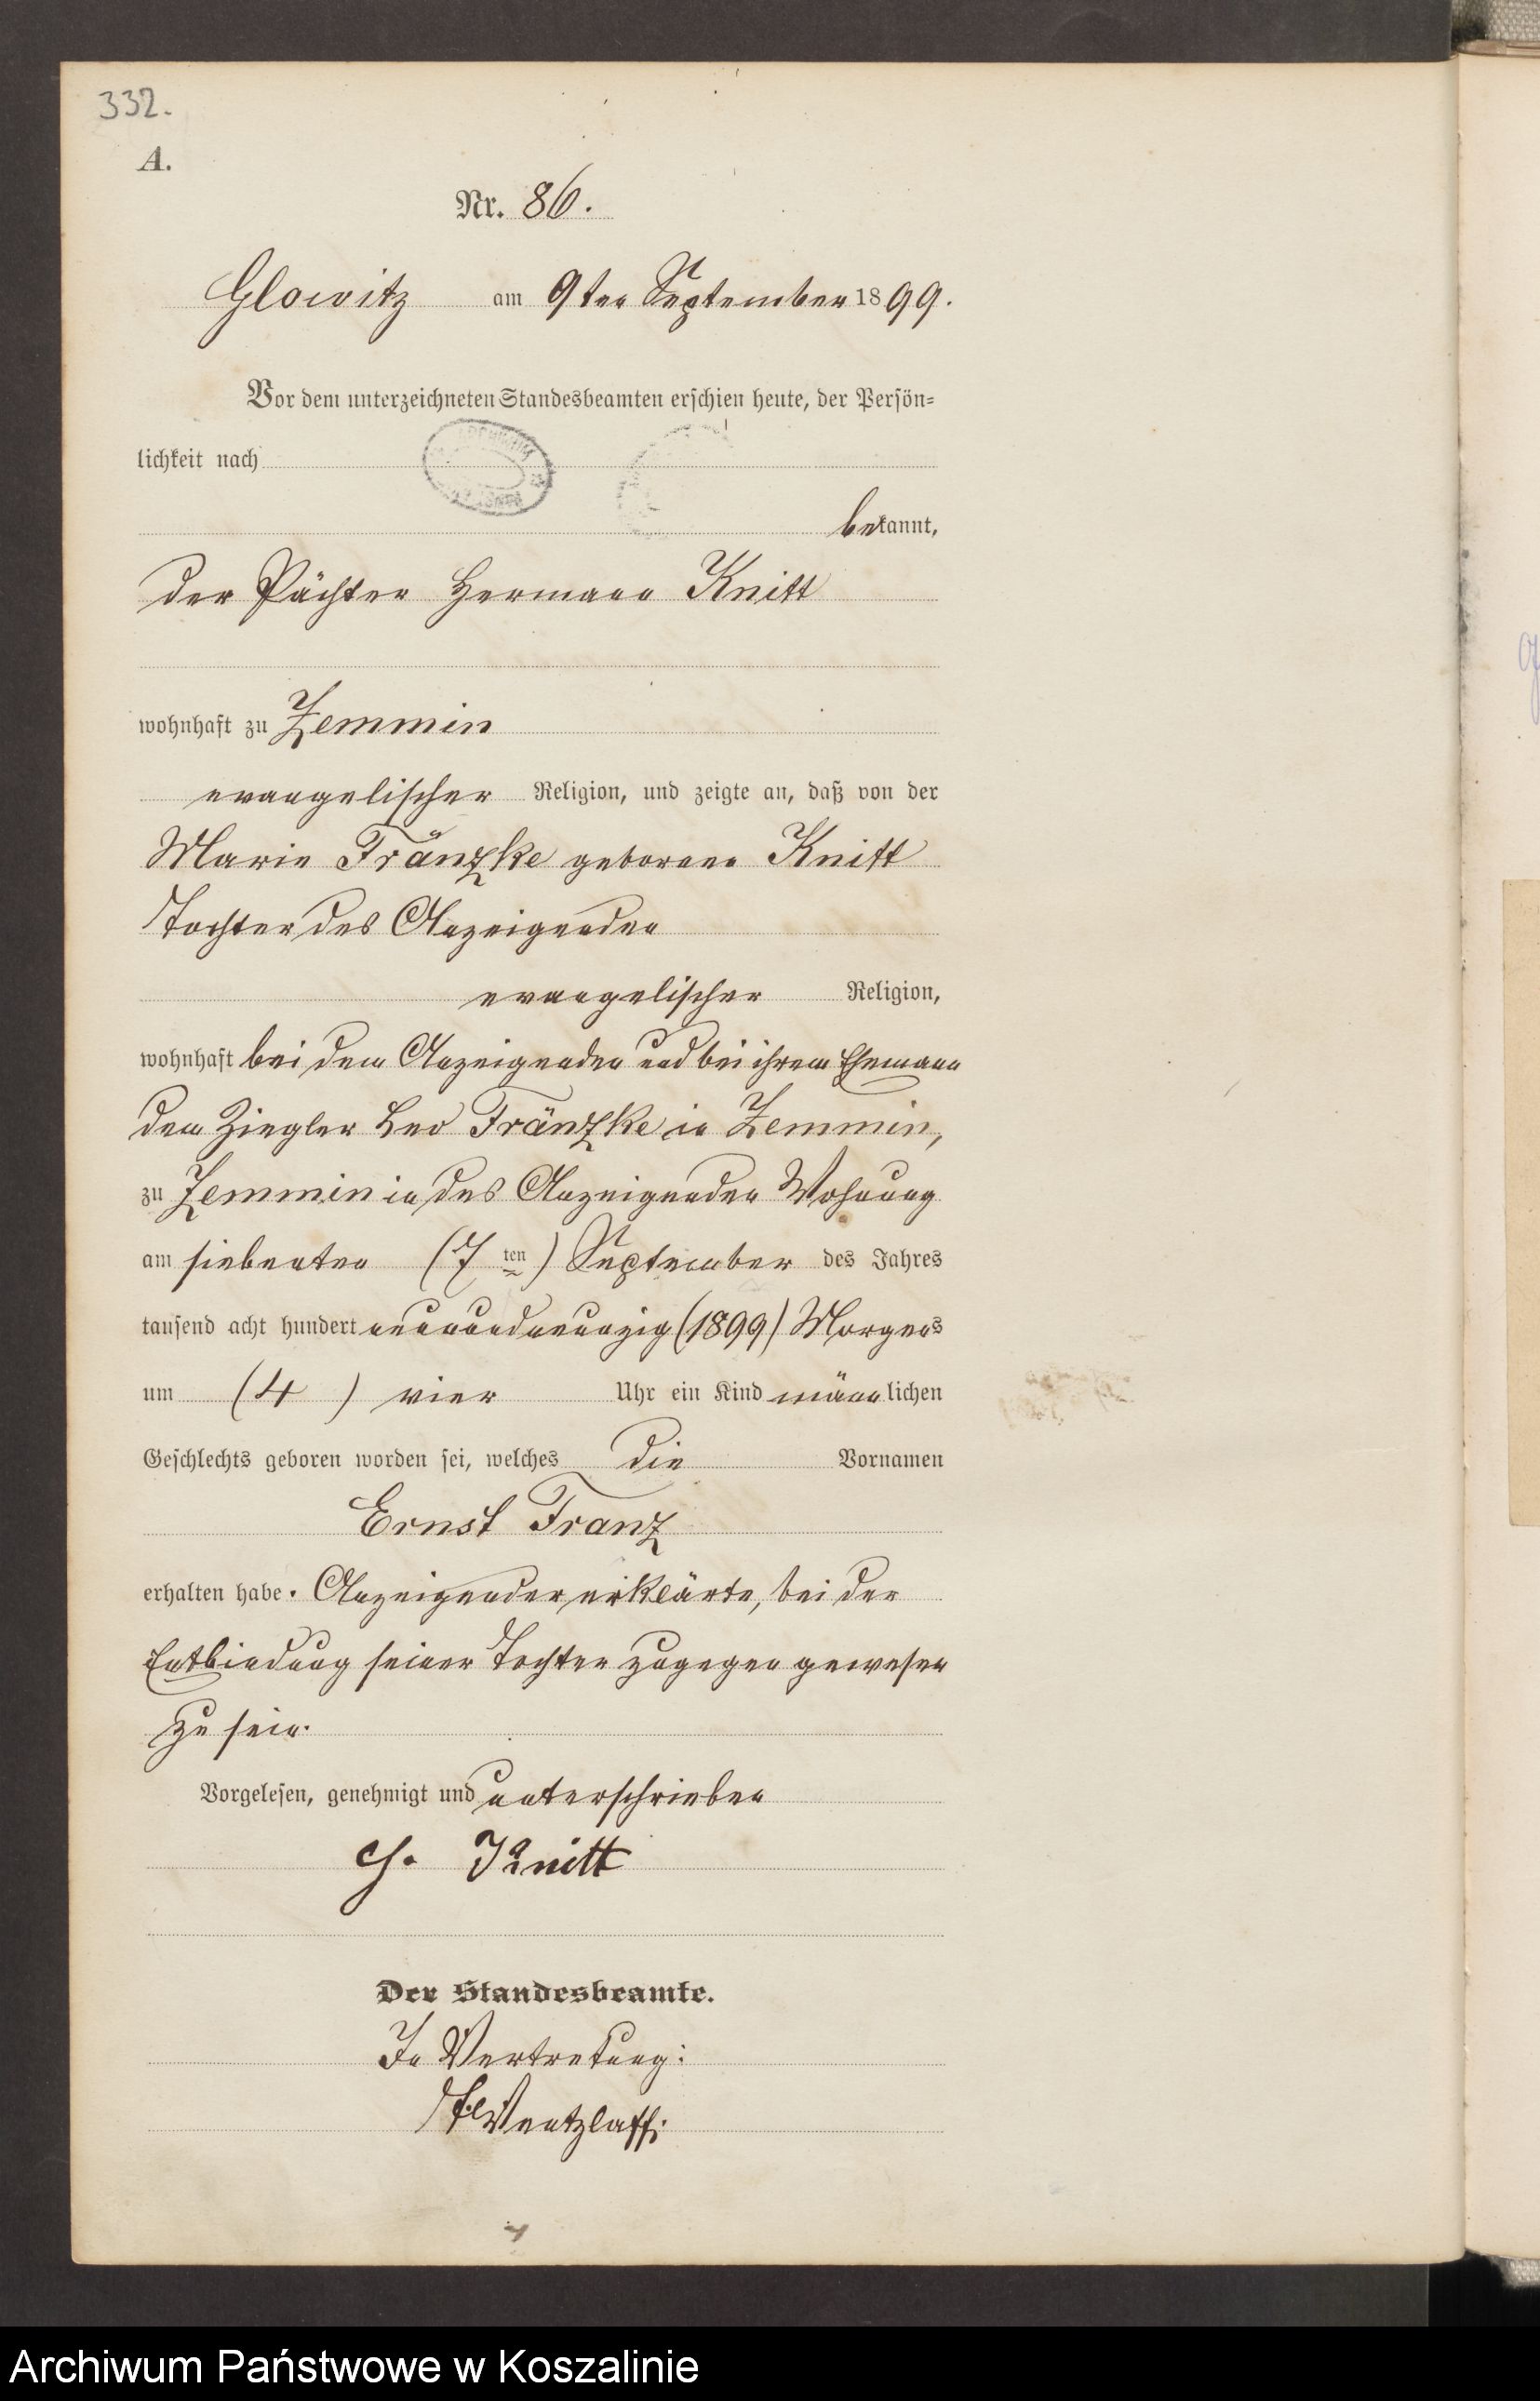 332.
A.
Nr. 86.
Glowitz am 9ten September 1899.
Vor dem unterzeichneten Standesbeamten erschien heute, der Persön=
lichkeit nach
bekannt,
der Pächter Hermann Knitt
wohnhaft zu Zemmin
evangelischer Religion, und zeigte an, daß von der
Marie Fränzke geborene Knitt
Tochter des Anzeigenden
evangelischer Religion,
wohnhaft bei dem Anzeigenden und bei ihrem Ehemann
dem Ziegler Leo Fränzke in Zemmin,
zu Zemmin in des Anzeigenden Wohnung
am siebenten (7ten) September des Jahres
tausend acht hundert neunundneunzig (1899) Morgens
um (4 ) vier Uhr ein Kind männlichen
Geschlechts geboren worden sei, welches die Vornamen
Ernst Franz
erhalten habe. Anzeigender erklärte, bei der
Entbindung seiner Tochter zugegen gewesen
zu sein.
Vorgelesen, genehmigt und unterschrieben
H. Knitt
Der Standesbeamte.
In Vertretung:
Wentzlaff.
Archiwum Państwowe w Koszalinie